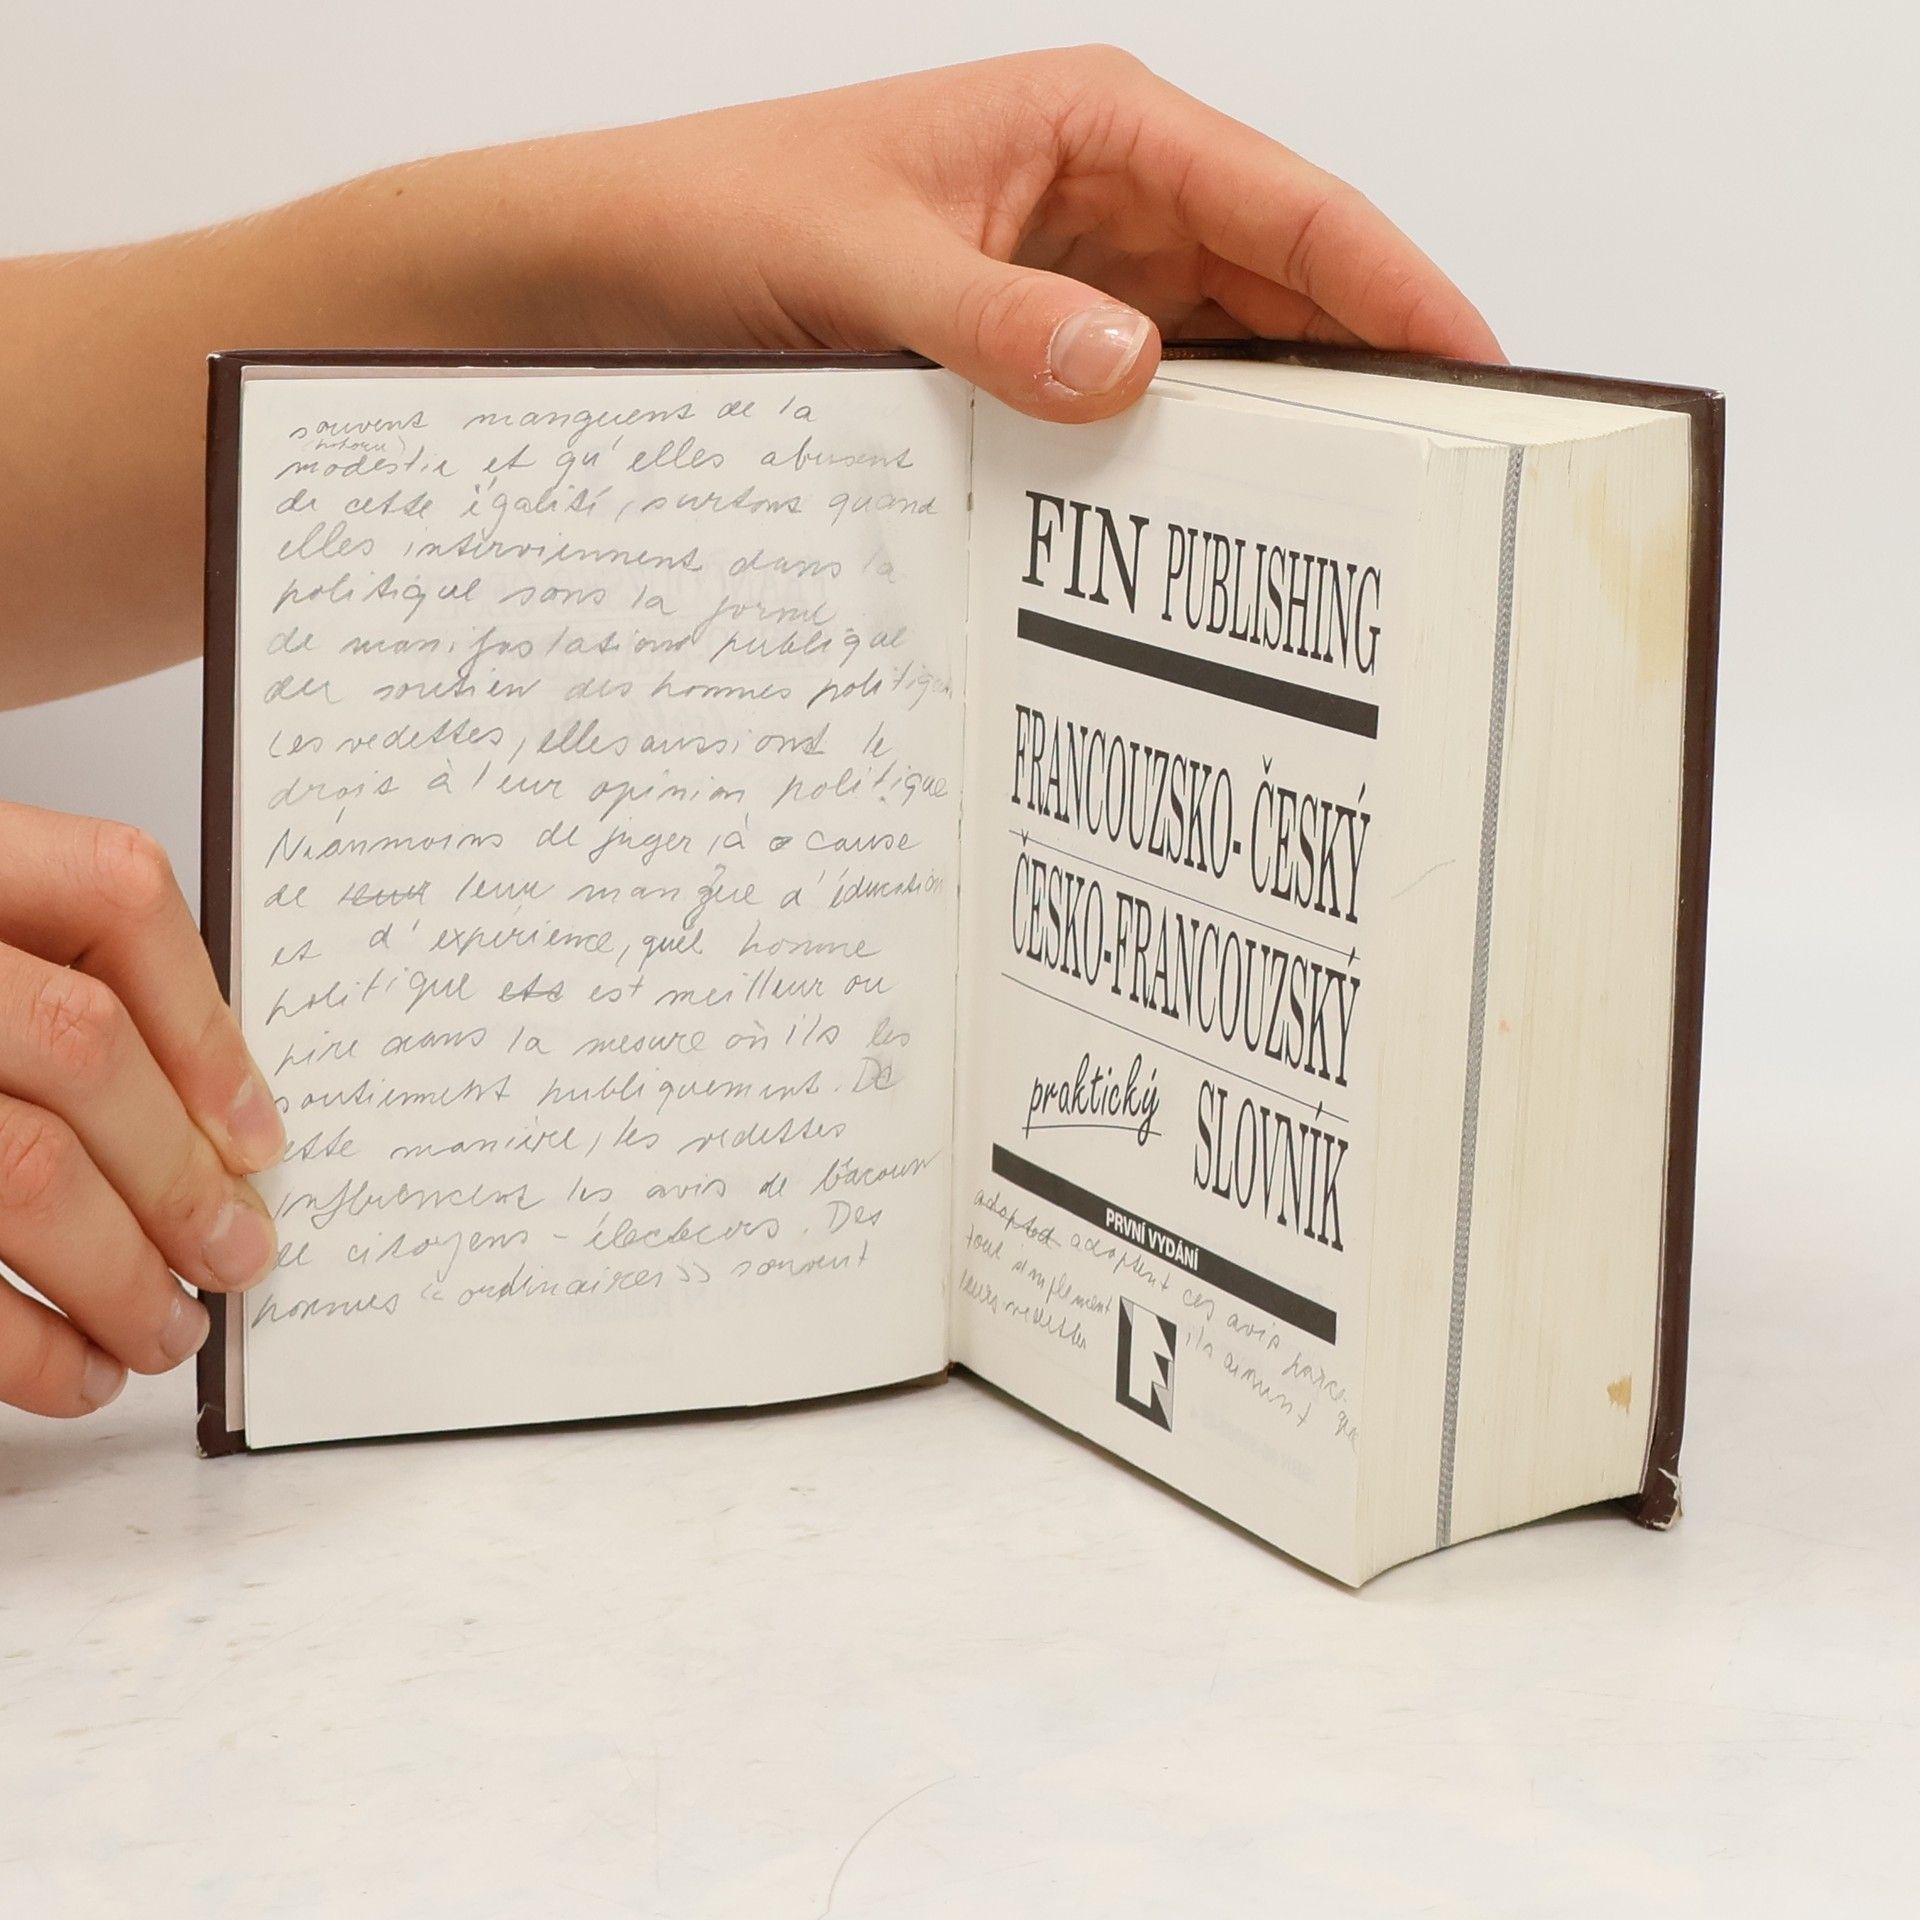 souvent manquent de la
modestie et qu'elles abusent
de cette égalité, surtout quand
elles interviennent dans la
politique sons la forme
de manifestations publique
der soutien des hommes politiques
Les vedettes, elles aussi ont le
droit à leur opinion politique
Néanmoins de juger, à cause
de leur leur manque d'éducation
et d'expérience, quel homme
politique ets est meilleur ou
pire dans la mesure où ils les
soutiennent publiquement. De
cette manière, les vedettes
influencent les avis de beacoun
de citoyens - électeurs. Des
hommes « ordinaires » souvent
FIN PUBLISHING
FRANCOUZSKO-ČESKÝ
ČESKO-FRANCOUZSKÝ
praktický SLOVNÍK
PRVNÍ VYDÁNÍ
adopted adoptent ces avis parce-que
tout simplement ils aiment
leurs vedettes